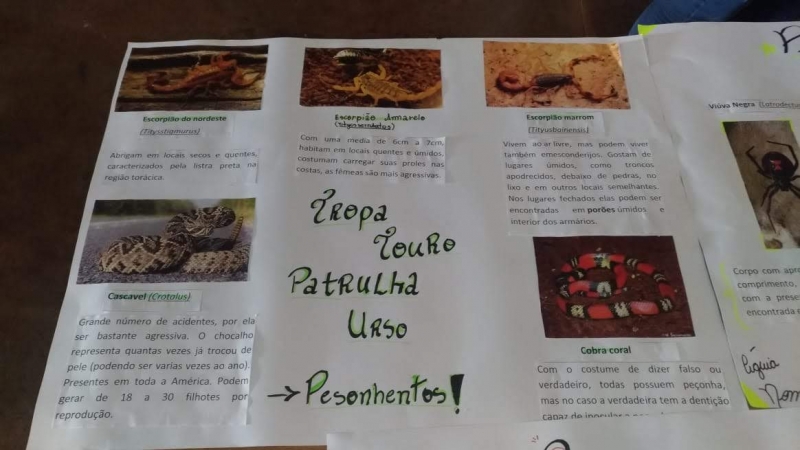 Escorpião do nordeste
(Tityusstigmurus)
Abrigam em locais secos e quentes,
caracterizados pela listra preta na
região torácica.
Cascavel (Crotalus)
Grande número de acidentes, por ela
ser bastante agressiva. O chocalho
representa quantas vezes já trocou de
pele (podendo ser varias vezes ao ano).
Presentes em toda a América. Podem
gerar de 18 a 30 filhotes por
reprodução.
Escorpião Amarelo
Com uma média de 6cm a 7cm,
habitam em locais quentes e úmidos,
costumam carregar suas proles nas
costas, as fêmeas são mais agressivas.
Tropa
Touro
Patrulha
Urso
→ Pesonhentos!
Escorpião marrom
(Tityusbahiensis)
Vivem ao ar livre, mas podem viver
também emesconderijos. Gostam de
lugares úmidos, como troncos
apodrecidos, debaixo de pedras, no
lixo e em outros locais semelhantes.
Nos lugares fechados elas podem ser
encontradas em porões úmidos e
interior dos armários.
Cobra coral
Com o costume de dizer falso ou
verdadeiro, todas possuem peçonha,
mas no caso a verdadeira tem a dentição
capaz de inocular
Viúva Negra
Corpo com
comprimento,
com a
encontrada